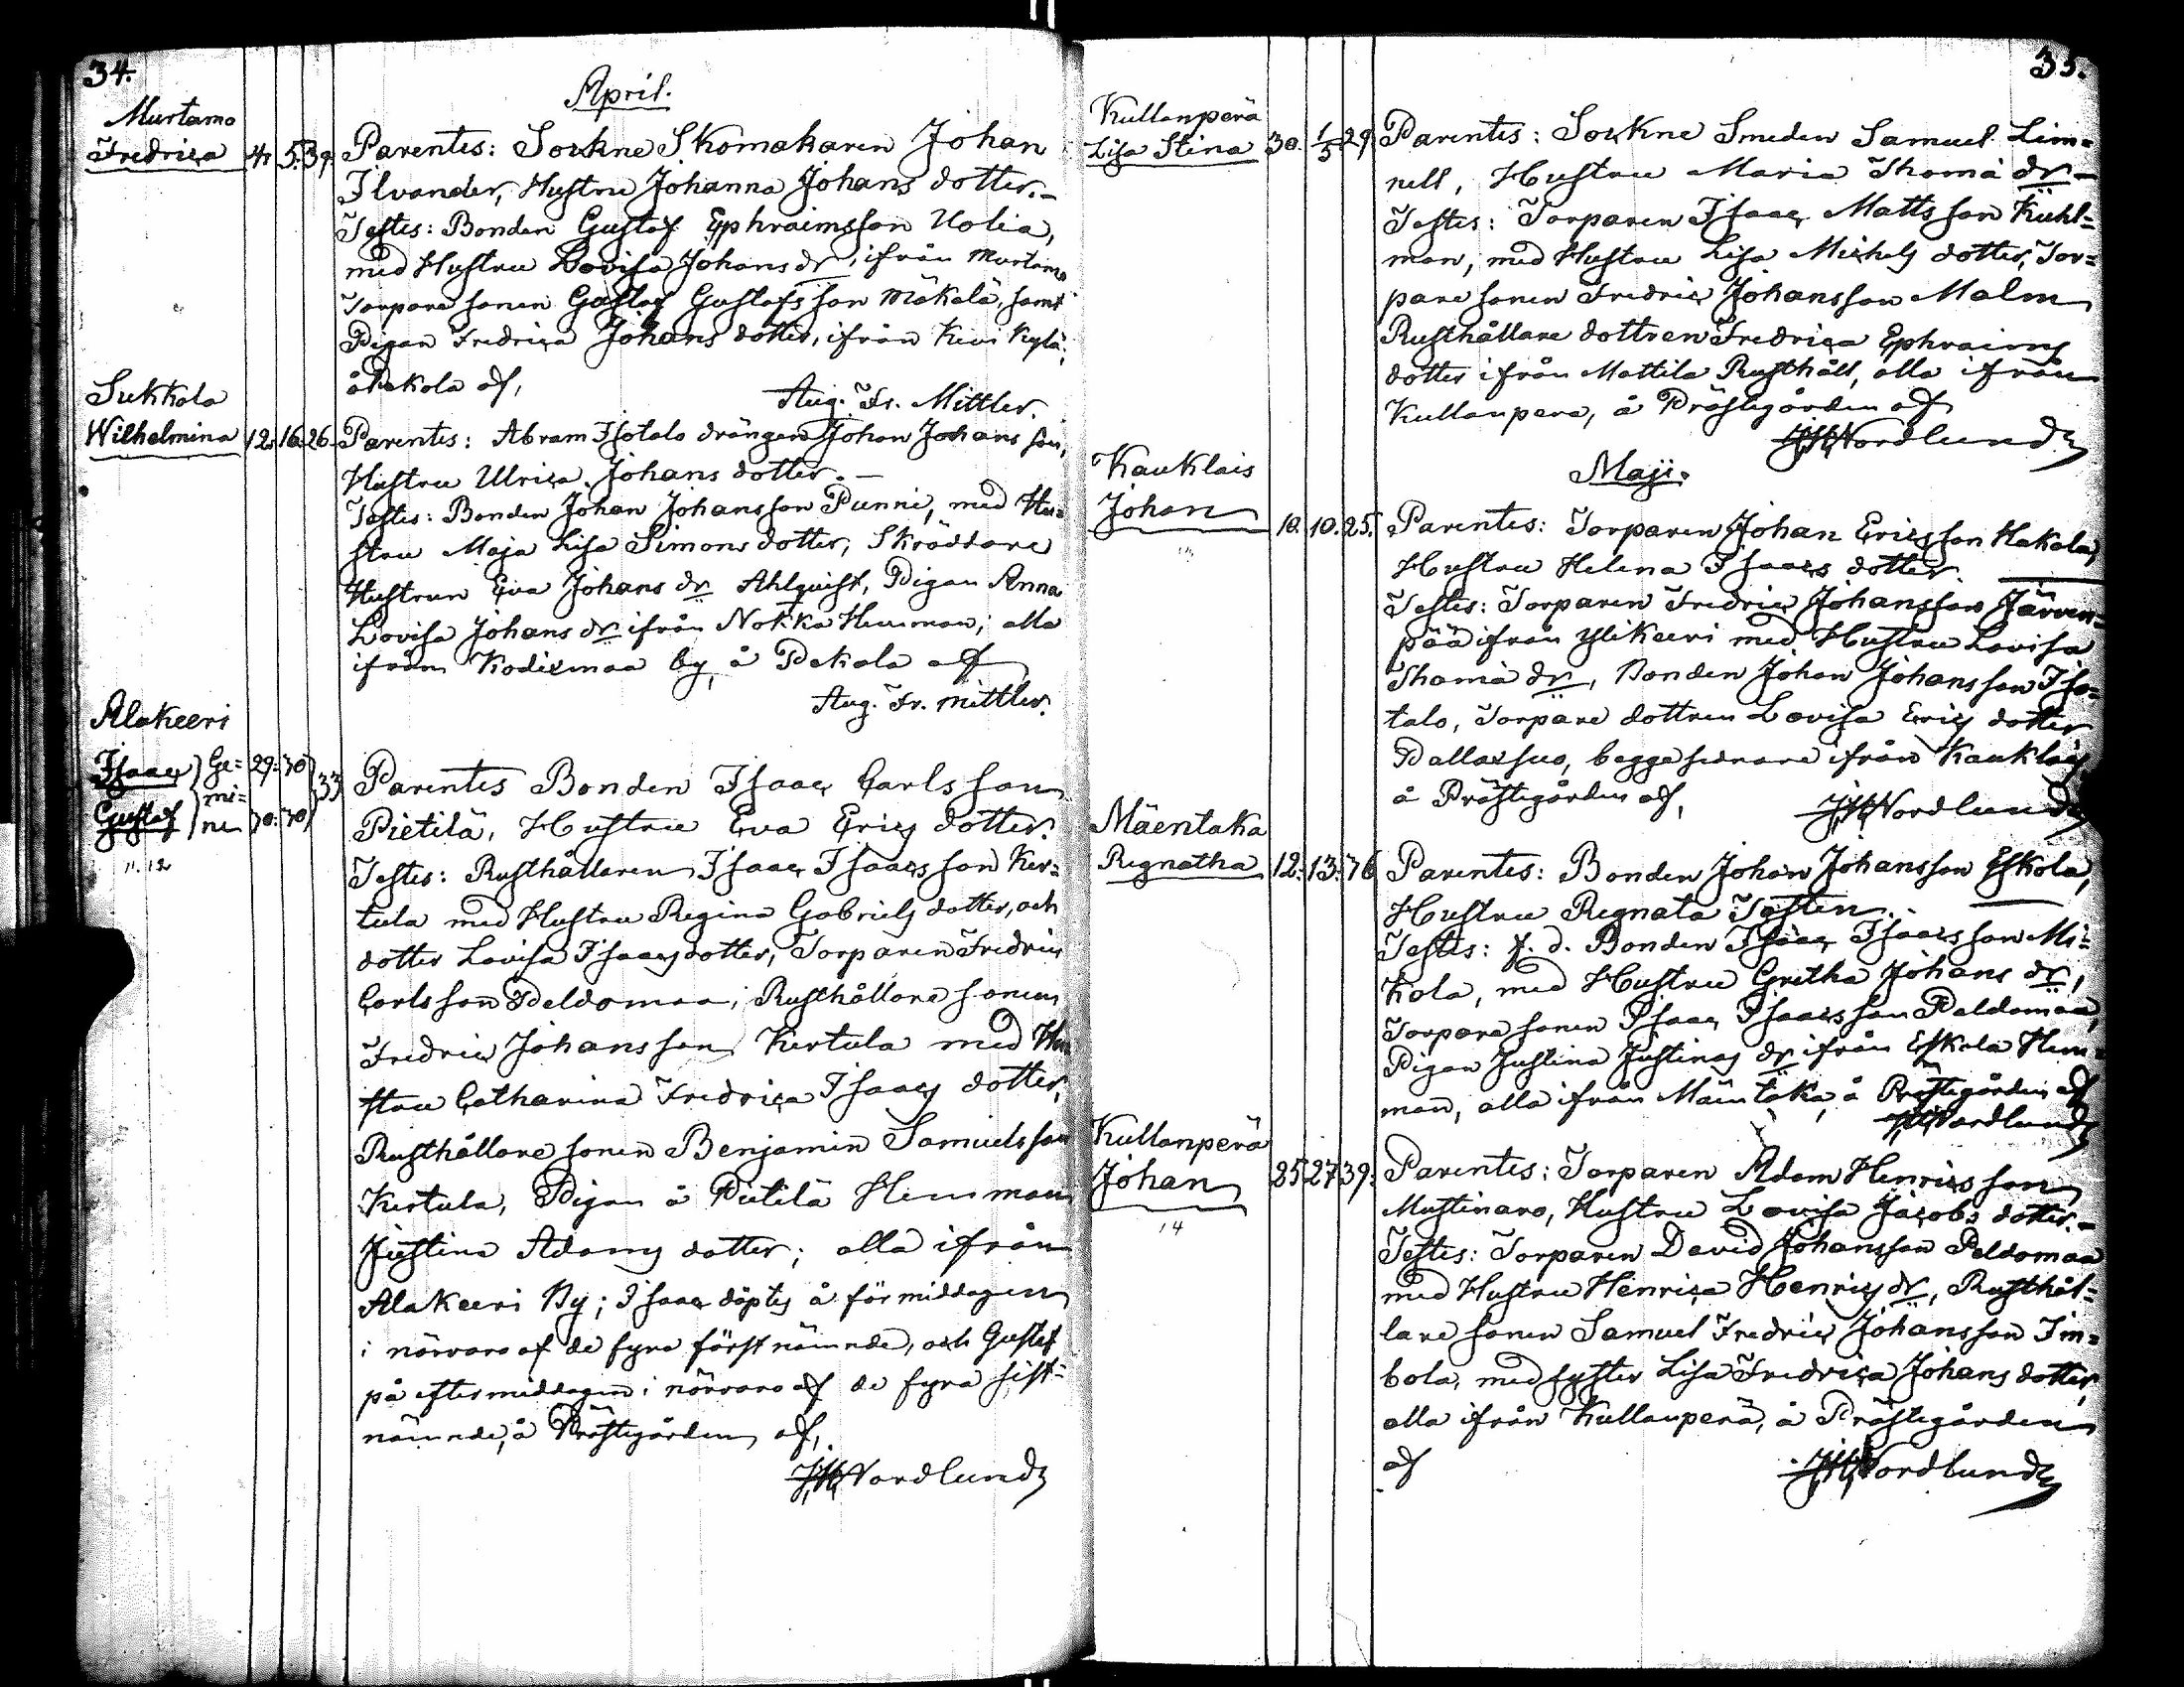 34.
April.
Murtamo
Fredrica 4. 5. 39. Parentes: Sockne Skomakaren Johan
Ilvander, Hustru Johanna Johans dotter.—
Testes: Bonden Gustaf Ephraimsson Uolia,
med Hustru Lovisa Johans dr, ifrån Murtamo
Torpare sonen Gustaf Gustafsson Mäkelä, samt
Pigan Fredrica Johans dotter, ifrån Kivi Kylä;
å Pekola af,
Aug. Fr. Mittler.
Sukkola
Wilhelmina 12. 16. 26. Parentes: Abram Isotalo drängen Johan Johans son,
Hustru Ulrica Johans dotter.—
Testes: Bonden Johan Johansson Punni, med Hu=
stru Maja Lisa Simons dotter, Skräddare
Hustrun Eva Johans dr Ahlquist, Pigan Anna
Lovisa Johans dr ifrån Nokka Hemman; alla
ifrån Kodixmaa by, å Pekola af
Aug. Fr. Mittler.
Alakeeri
Isaac } Ge= 29. 30 } 33 Parentes Bonden Isaac Carlsson
Gustaf } mi= ni 30. 30 Pietilä, Hustru Eva Erics dotter.
11. 12
Testes: Rusthållaren Isaac Isaacsson Ker=
tula med Hustru Regina Gabriels dotter, och
dotter Lovisa Isaacs dotter, Torparen Fredric
Carlsson Peldomaa; Rusthållare sonen
Fredric Johansson Kertula med Hu
stru Catharina Fredrica Isaacs dotter,
Rusthållare sonen Benjamin Samuelsson
Kertula, Pigan å Pietilä Hemman
Justina Adams dotter; alla ifrån
Alakeeri By; Isaac döptes å förmiddagen
i närvaro af de fyra förstnämnde, och Gustaf
på eftermiddagen i närvaro af de fyra sist=
nämnde, å Prästegården af,
Nordlund
35.
Kullanperä
Lisa Stina 30. 1/5 29. Parentes: Sockne Smeden Samuel Lim=
nell, Hustru Maria Thomä dr—
Testes: Torparen Isaac Mattsson Kuhl=
man, med Hustru Lisa Michels dotter, Tor=
pare sonen Fredric Johansson Malm
Rusthållare dottren Fredrica Ephraims
dotter ifrån Mattila Rusthåll, alla ifrån
Kullanperä, å Prästegården af
Nordlund
Maji.
Kauklais
Johan 10. 10. 25. Parentes: Torparen Johan Ericsson Hakala,
Hustru Helena Isaacs dotter.
Testes: Torparen Fredric Johansson Järven=
pää ifrån Ylikeeri med Hustru Lovisa
Thomä dr, Bonden Johan Johansson Iso=
talo, Torpare dottren Lovisa Erics dotter
Pallassuo, begge sednare ifrån Kauklais
å Prästegården af,
Nordlund
Mäentaka
Regnatha 12. 13. 36 Parentes: Bonden Johan Johansson Eskola,
Hustru Regnata Tasten.
Testes: f. d. Bonden Isaac Isaacsson Mi=
kola, med Hustru Gretha Johans dr,
Torpare sonen Isaac Isaacsson Peldomaa,
Pigan Justina Justinas dr ifrån Eskola Hem=
man, alla ifrån Mäentaka, å Prästegården af
Nordlund
Kullanperä
Johan 25. 27. 39. Parentes: Torparen Adam Henricsson
14
Mustinaro, Hustru Lovisa Jacobs dotter.—
Testes: Torparen David Johansson Peldomaa
med Hustru Henrica Henrics dr, Rusthål=
lare sonen Samuel Fredric Johansson Im=
bola, med syster Lisa Fredrica Johans dotter,
alla ifrån Kullanperä, å Prästegården
af
Nordlund